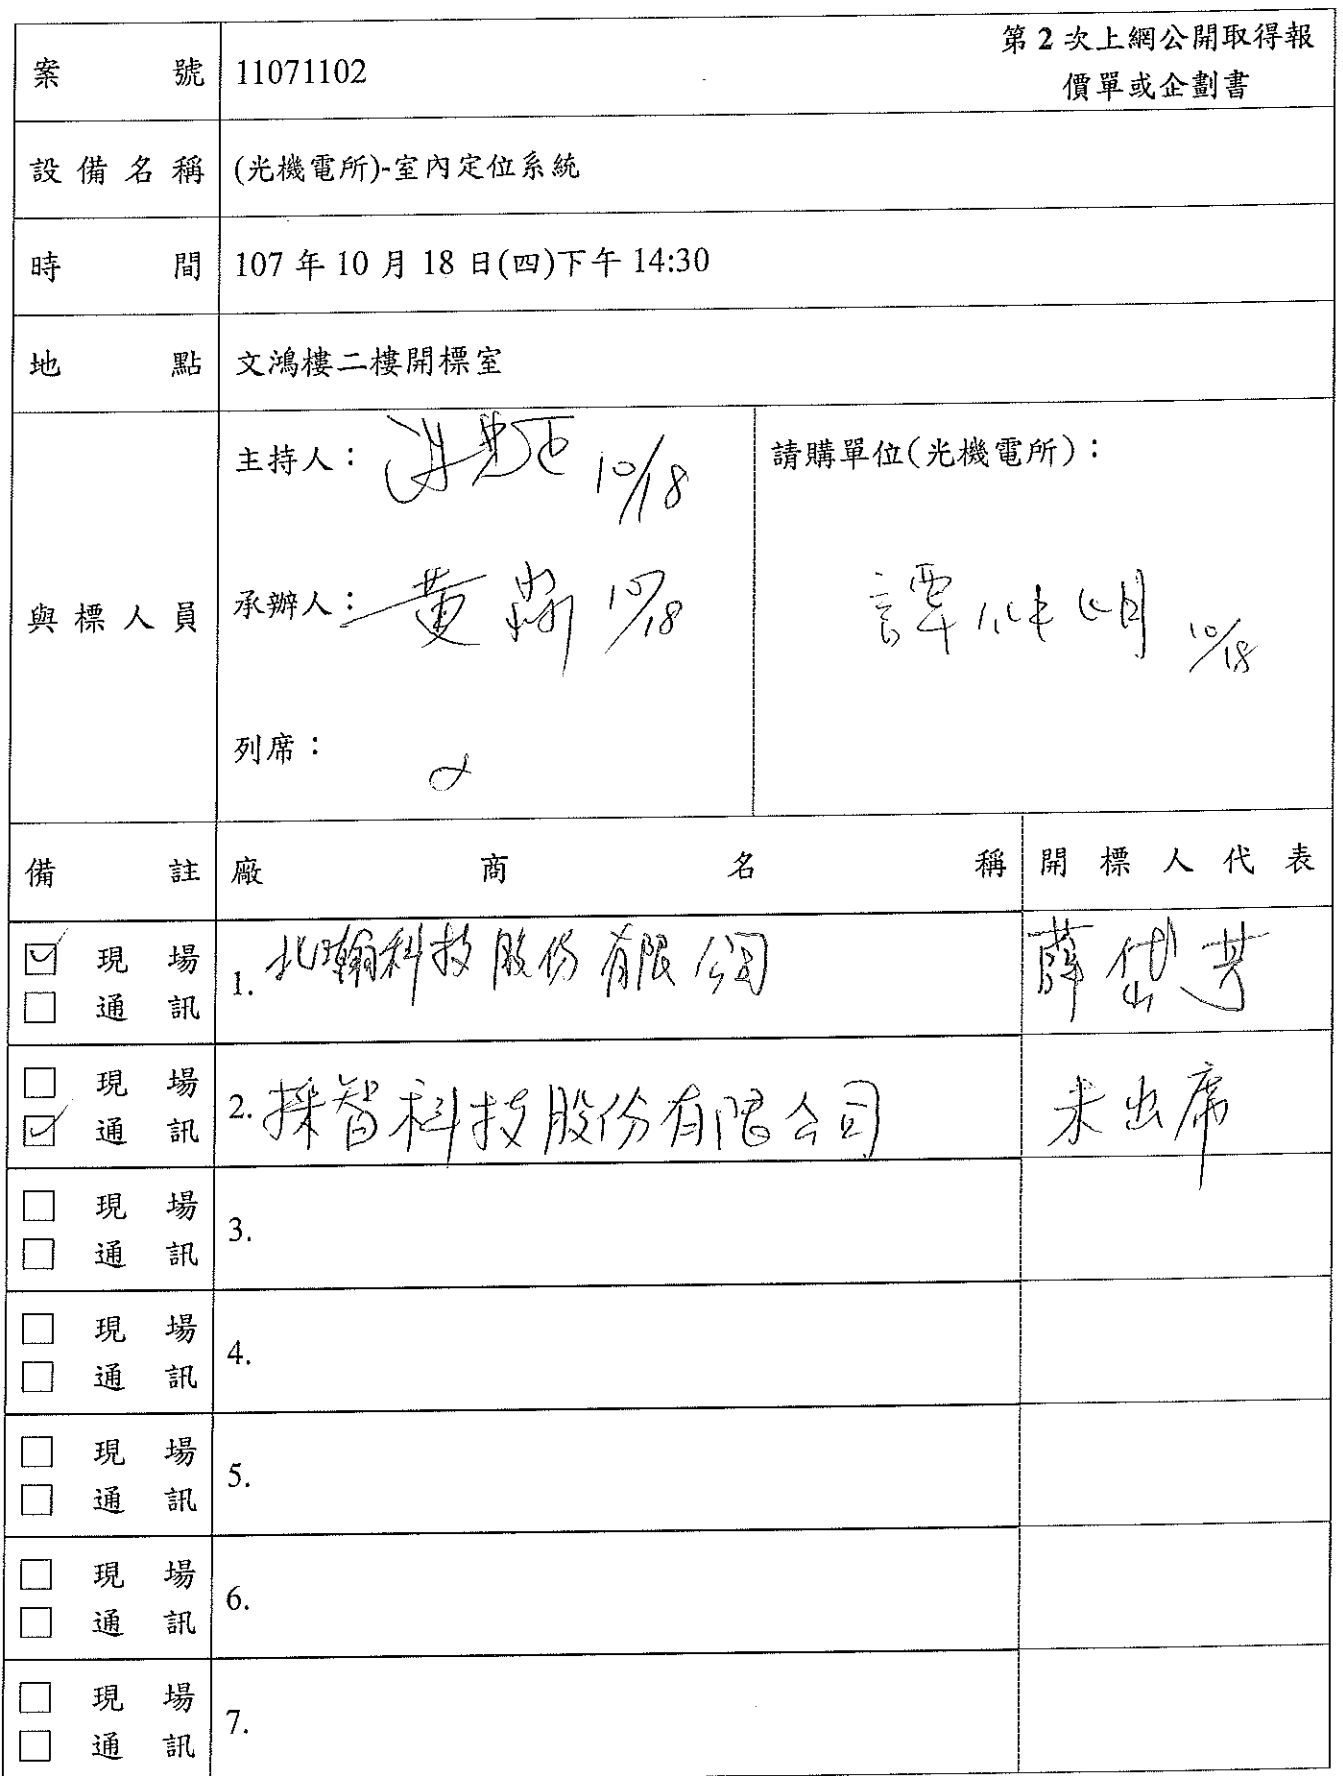 第2次上網公開取得報
價單或企劃書
案號 11071102
設備名稱 (光機電所)-室內定位系統
時間 107年10月18日(四)下午14:30
地點 文鴻樓二樓開標室
與標人員
主持人： 10/18
承辦人： 黃 10/18
列席：
請購單位(光機電所)：
譚仲明 10/18
備註 廠商名稱 開標人代表
☑ 現場
☐ 通訊
1. 北瀚科技股份有限公司 薛岱芳
☐ 現場
☑ 通訊
2. 採智科技股份有限公司 未出席
☐ 現場
☐ 通訊
3.
☐ 現場
☐ 通訊
4.
☐ 現場
☐ 通訊
5.
☐ 現場
☐ 通訊
6.
☐ 現場
☐ 通訊
7.